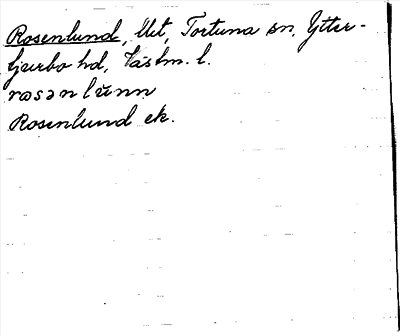 Rosenlund, llht, Tortuna sn, Ytter-
tjurbo hd, Västm. l.
rosənlünn
Rosenlund ek.